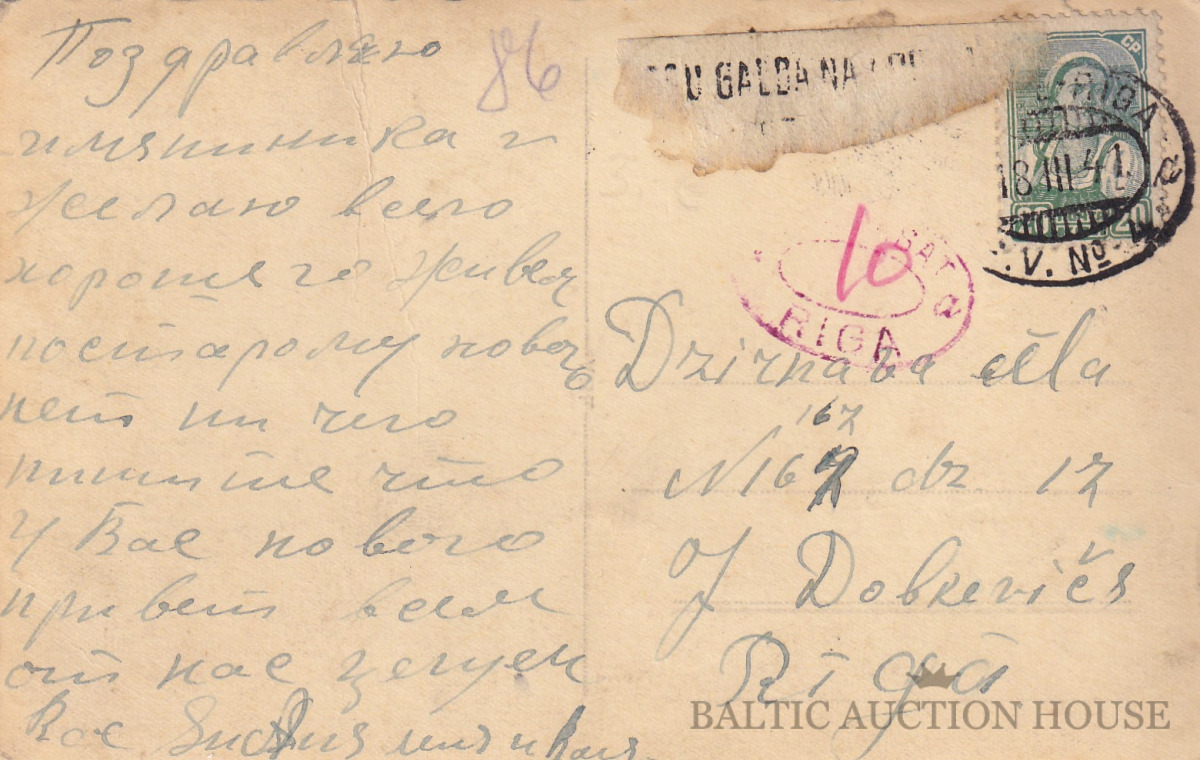 Поздравляю
имянинника и
желаю всего
хорошяго живем
постарому новог
нет ни чего
пишите что
У Вас нового
привет всем
от нас целуем
Вас
86
GALDA NA
СР
RIGA
18 III 41
20
V. No
10
RIGA
a
Dzirnava iela
167
N 167 dz 17
J Dobkevičs
Rīgā
BALTIC AUCTION HOUSE